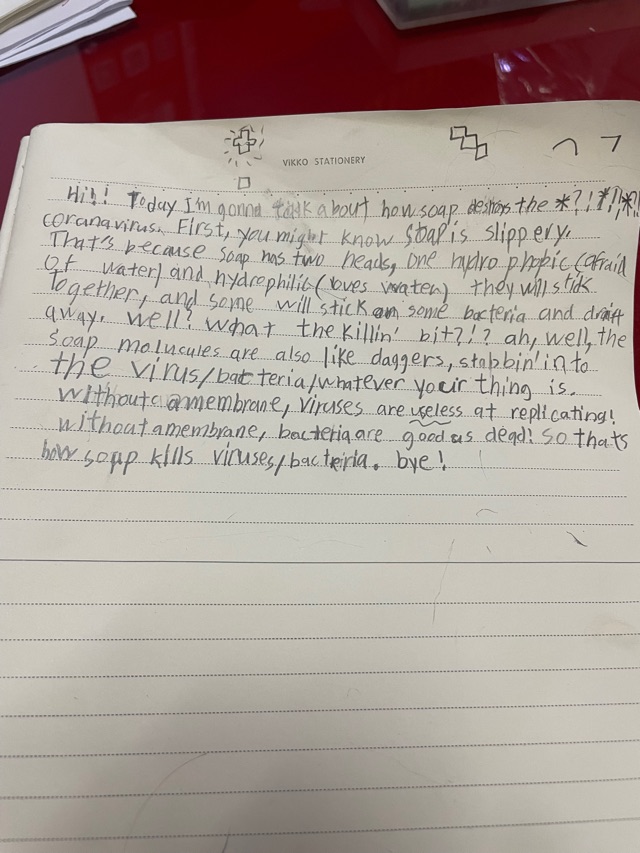 VIKKO STATIONERY
Hi!! Today I'm gonna talk about how soap destroys the *?!*!!*!
coranavirus. First, you might know soap is slippery.
That's because soap has two heads, one hydro phobic (afraid
of water) and hydrophilic (loves water) they will stick
together, and some will stick on some bacteria and drift
away. well? what the killin' bit?!? ah, well, the
soap molucules are also like daggers, stabbin' into
the virus/bacteria/whatever your thing is.
without a membrane, viruses are useless at replicating!
without a membrane, bacteria are good as dead! so thats
how soap kills viruses/bacteria. bye!